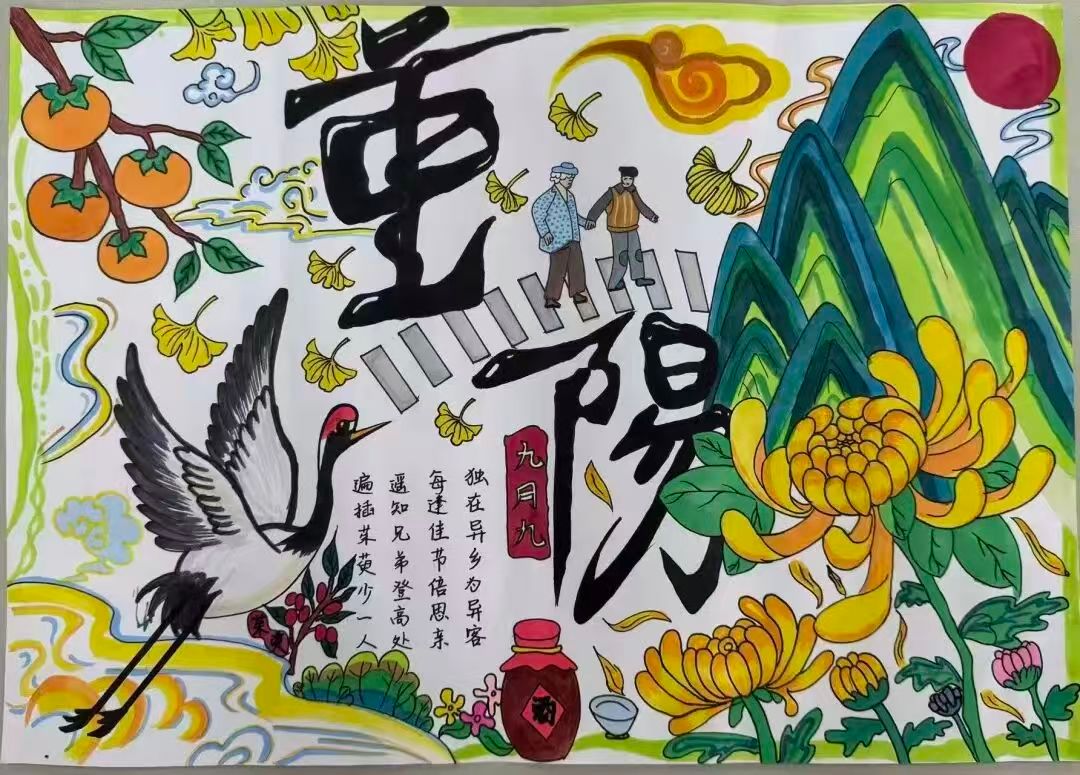 重陽
九月九
独在异乡为异客
每逢佳节倍思亲
遥知兄弟登高处
遍插茱萸少一人
茱萸
酒